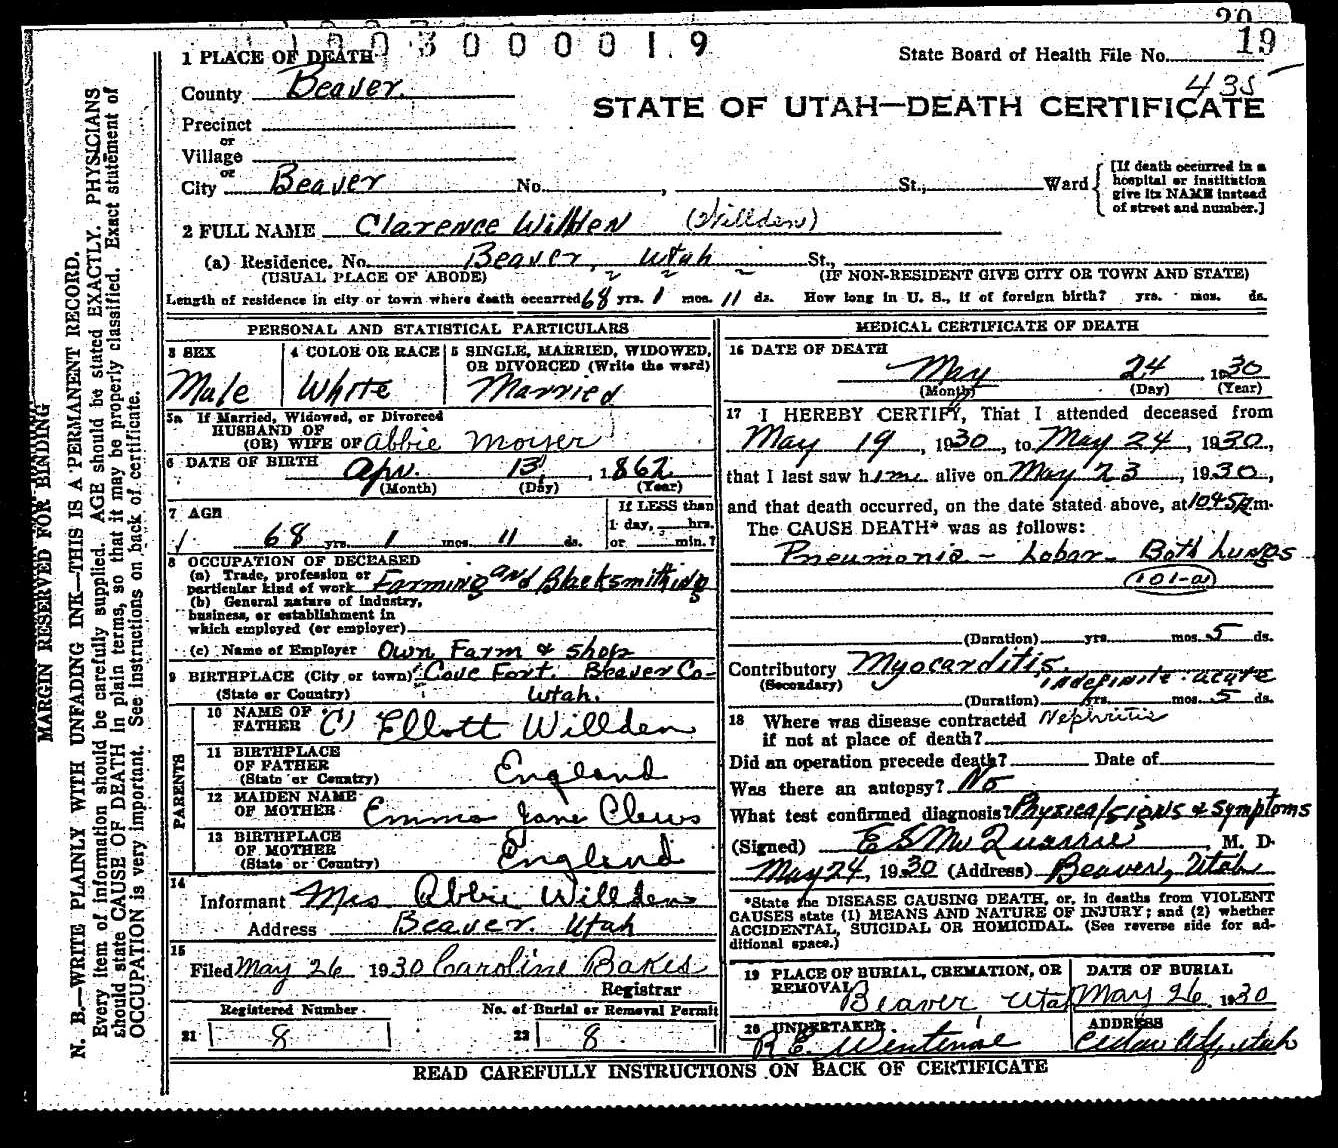 20
1003000019
19
State Board of Health File No.
435
STATE OF UTAH—DEATH CERTIFICATE
1 PLACE OF DEATH
County Beaver.
Precinct
or
Village
or
City Beaver No. , St., Ward
[If death occurred in a
hospital or institution
give its NAME instead
of street and number.]
2 FULL NAME Clarence Willden (Willden)
(a) Residence. No. Beaver, Utah St.,
(USUAL PLACE OF ABODE) (IF NON-RESIDENT GIVE CITY OR TOWN AND STATE)
Length of residence in city or town where death occurred 68 yrs. 1 mos. 11 ds. How long in U. S., if of foreign birth? yrs. mos. ds.
PERSONAL AND STATISTICAL PARTICULARS
3 SEX
Male
4 COLOR OR RACE
White
5 SINGLE, MARRIED, WIDOWED,
OR DIVORCED (Write the word)
Married
5a If Married, Widowed, or Divorced
HUSBAND OF
(OR) WIFE OF Abbie Moyer
6 DATE OF BIRTH Apr. 13, 1862
(Month) (Day) (Year)
7 AGE
68 yrs. 1 mos. 11 ds.
If LESS than
1 day, hrs.
or min.?
8 OCCUPATION OF DECEASED
(a) Trade, profession or
particular kind of work Farming and Blacksmithing
(b) General nature of industry,
business, or establishment in
which employed (or employer)
(c) Name of Employer Own Farm & Shop
9 BIRTHPLACE (City or town) Cove Fort. Beaver Co-
(State or Country) Utah.
PARENTS
10 NAME OF
FATHER Ellott Willden
11 BIRTHPLACE
OF FATHER
(State or Country) England
12 MAIDEN NAME
OF MOTHER Emma Jane Clews
13 BIRTHPLACE
OF MOTHER
(State or Country) England
14
Informant Mrs Abbie Willden
Address Beaver. Utah
15
Filed May 26 1930 Caroline Bakes
Registrar
Registered Number.
21 8
No. of Burial or Removal Permit
22 8
MEDICAL CERTIFICATE OF DEATH
16 DATE OF DEATH
May 24, 1930
(Month) (Day) (Year)
17 I HEREBY CERTIFY, That I attended deceased from
May 19, 1930, to May 24, 1930,
that I last saw him alive on May 23, 1930,
and that death occurred, on the date stated above, at 1045 p.m.
The CAUSE DEATH* was as follows:
Pneumonia - Lobar - Both Lungs
101-a
(Duration) yrs. mos. 5 ds.
Contributory Myocarditis.
(Secondary) indefinite. acute
(Duration) yrs. mos. 5 ds.
18 Where was disease contracted Nephritis
if not at place of death?
Did an operation precede death? Date of
Was there an autopsy? No
What test confirmed diagnosis? Physical signs & symptoms
(Signed) E S McQuarrie, M. D.
May 24, 1930 (Address) Beaver, Utah
*State the DISEASE CAUSING DEATH, or, in deaths from VIOLENT
CAUSES state (1) MEANS AND NATURE OF INJURY; and (2) whether
ACCIDENTAL, SUICIDAL OR HOMICIDAL. (See reverse side for ad-
ditional space.)
19 PLACE OF BURIAL, CREMATION, OR
REMOVAL
Beaver Utah
DATE OF BURIAL
May 26 1930
20 UNDERTAKER.
ADDRESS
Cedar City, Utah
READ CAREFULLY INSTRUCTIONS ON BACK OF CERTIFICATE
MARGIN RESERVED FOR BINDING
N. B.—WRITE PLAINLY WITH UNFADING INK—THIS IS A PERMANENT RECORD.
Every item of information should be carefully supplied. AGE should be stated EXACTLY. PHYSICIANS
should state CAUSE OF DEATH in plain terms, so that it may be properly classified. Exact statement of
OCCUPATION is very important. See instructions on back of certificate.